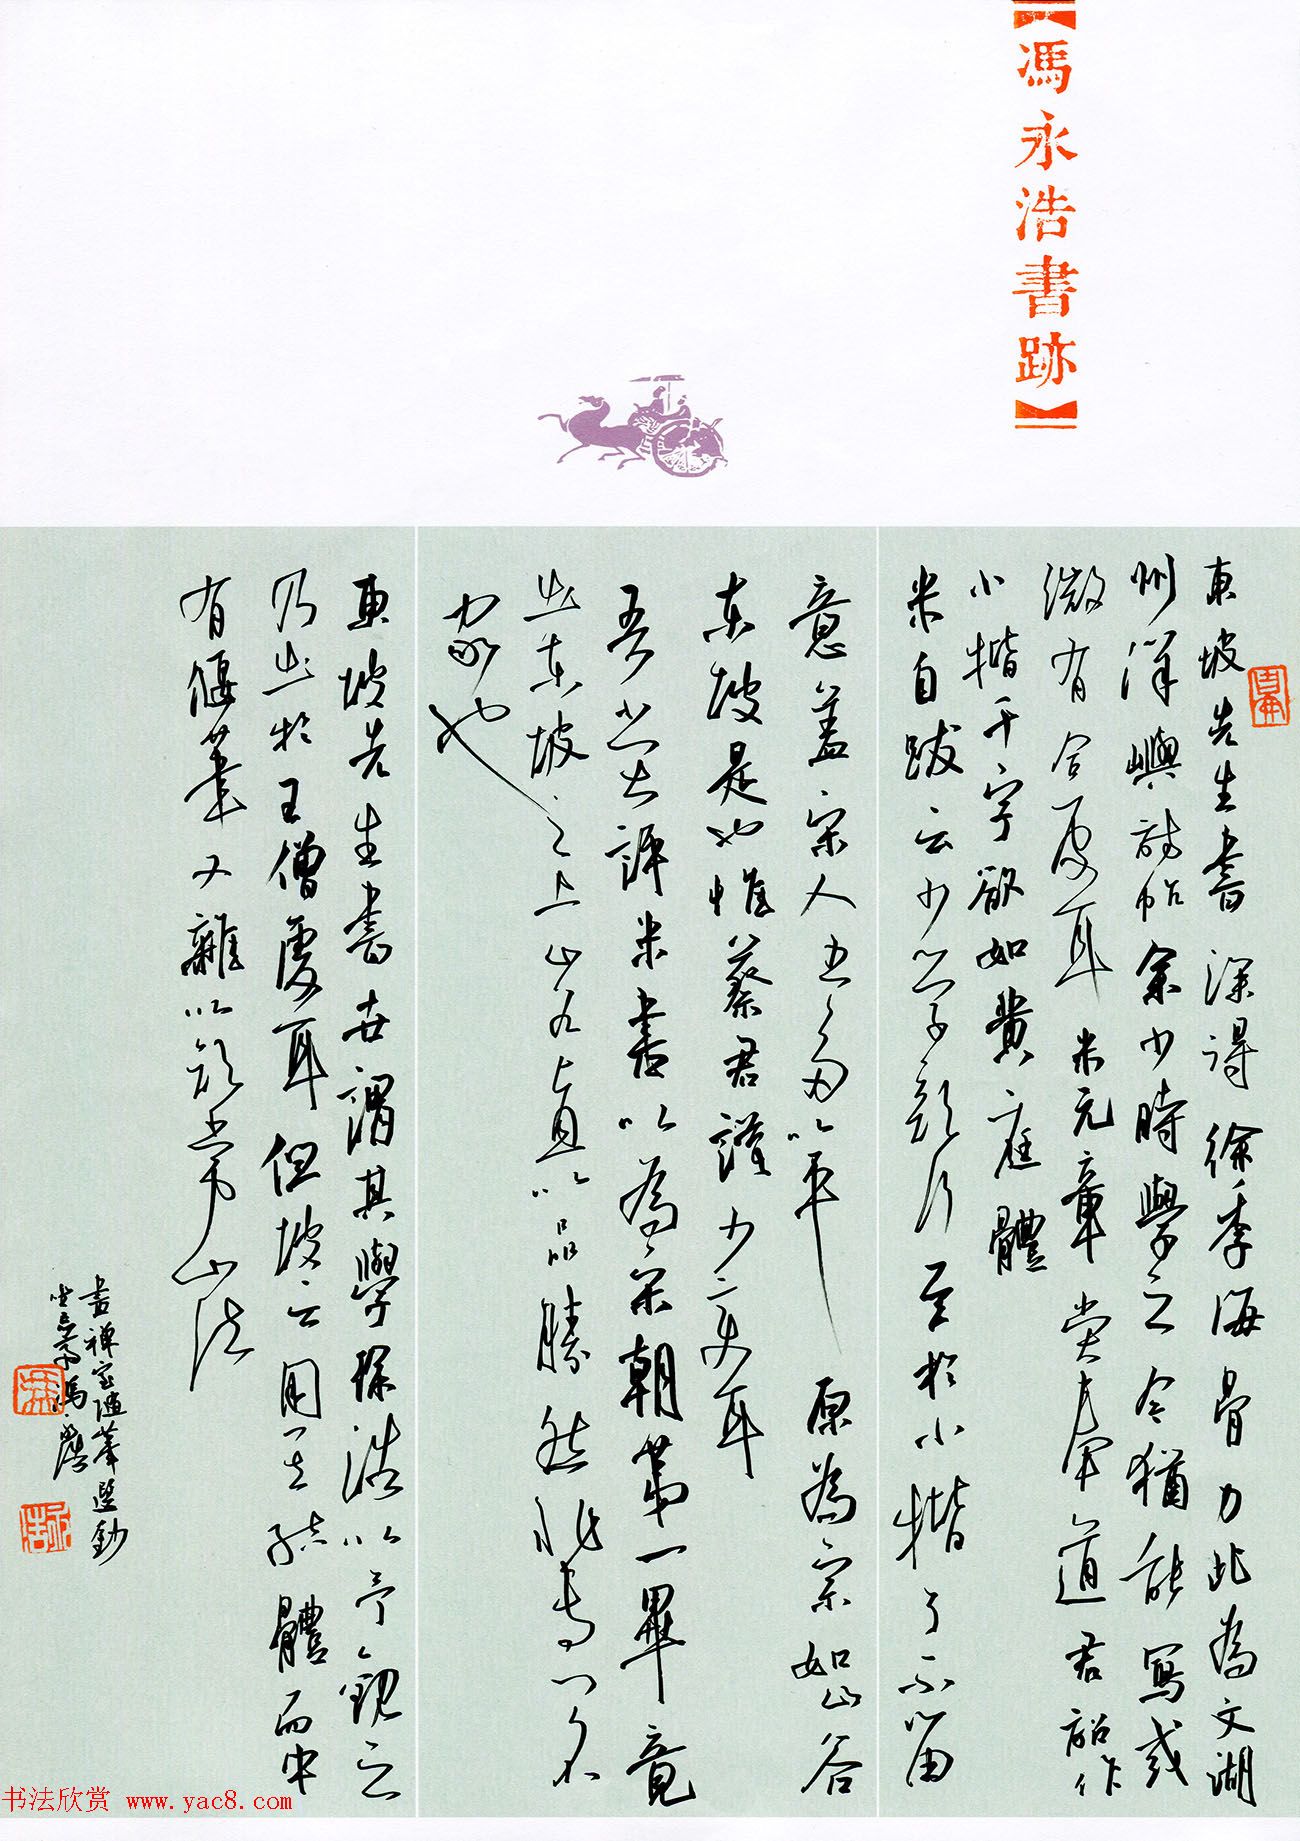 【馮永浩書跡】
東坡先生書深得徐季海骨力此為文湖
州洋嶼詩帖余少時學之今猶能寫或
微有合處耳米元章嘗奉道君詔作
小楷千字欲如黃庭體
米自跋云少學顏行至於小楷了不留
意蓋宋人書多以平原為宗如山谷
東坡是也惟蔡君謨少變耳
吾嘗評米書以為宋朝第一畢竟
出東坡之上山谷直以品勝然非專門名
家也
東坡先生書世謂其學徐浩以予觀之
乃出於王僧虔耳但坡云用其結體而中
有偃筆又雜以顏常山法
書禪室隨筆選鈔
書法欣赏 www.yac8.com